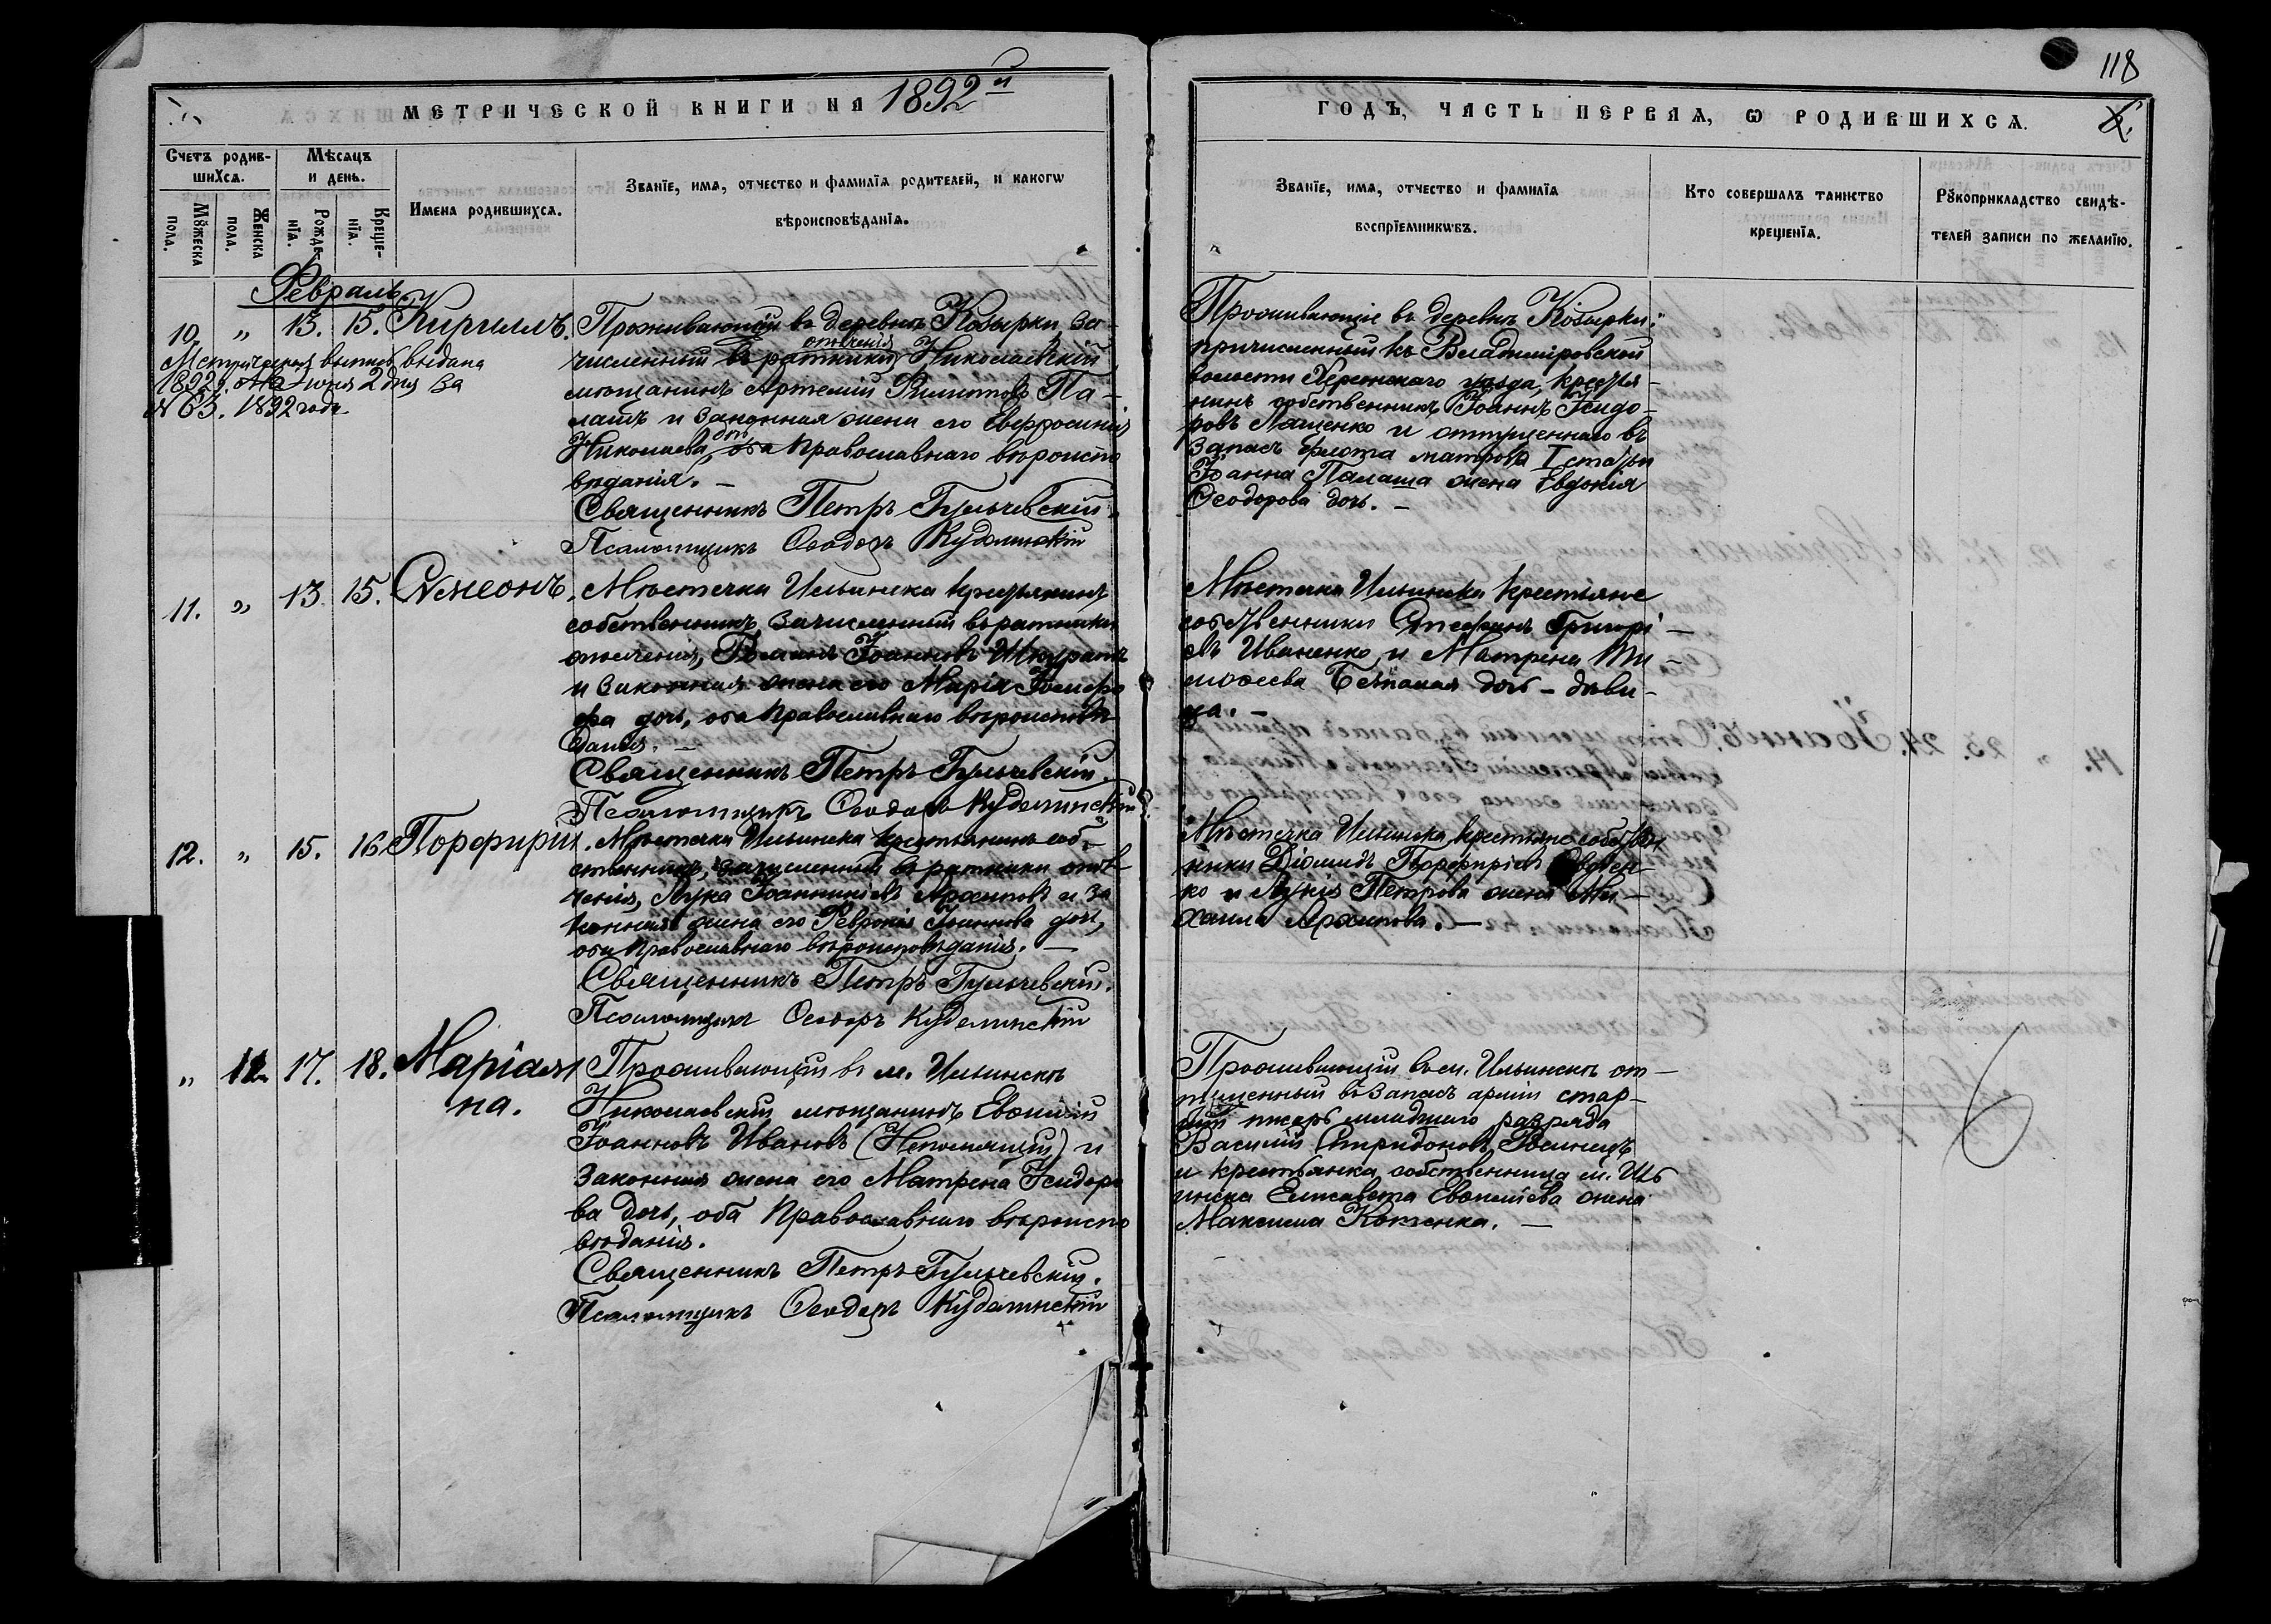 118
МЕТРИЧЕСКОЙ КНИГИ НА 1892й
ГОДЪ, ЧАСТЬ ПЕРВАЯ, Ѡ РОДИВШИХСѦ.
Счетъ родив-
шихсѧ.
Мѣсѧцъ
и день.
Мꙋжеска
пола.
Женска
пола.
Рожде-
нїѧ.
Креще-
нїѧ.
Имена родившихсѧ.
Званїе, имѧ, отчество и фамилїѧ родителей, и какогѡ
вѣроисповѣданїѧ.
Званїе, имѧ, отчество и фамилїѧ
воспрїемникѡвъ.
Кто совершалъ таинство
крещенїѧ.
Рꙋкоприкладство свидѣ-
телей записи по желанїю.
Февраль
10. " 13. 15. Кириллъ.
Метрическая выпись выдана
1892 г. Іюня 2 дня за
№ 63. 1892 года
Проживающій въ деревнѣ Козырки, за-
численный въ ратники ополченія Николаевскій
мѣщанинъ Артемій Филиповъ Па-
лашъ и законная жена его Евфросинія
Николаева дочь, оба Православнаго вѣроиспо
вѣданія. –
Священникъ Петръ Гульчевскій.
Псаломщикъ Ѳеодоръ Кудалинскій
Проживающіе въ деревнѣ Козырки:
причисленный къ Владимировской
волости Херсонскаго уѣзда, крестья-
нинъ собственникъ Іоаннъ Исидо-
ровъ Лященко и отпущеннаго въ
запасъ флота матроса I статьи
Іоанна Палаша жена Евдокія
Ѳеодорова дочь. –
11. " 13. 15. Сѵмеонъ.
Мѣстечка Ильинска крестьянинъ
собственникъ зачисленный въ ратники
ополченія, Іоанновъ
и законная жена его Марія Іосифо
ва дочь, оба Православнаго вѣроисповѣ
данія. –
Священникъ Петръ Гульчевскій.
Псаломщикъ Ѳеодоръ Кудалинскій
Мѣстечка Ильинска крестьяне
собственники Стефанъ Григорі-
евъ Иваненко и Матрена Ти-
моѳеева дочь – дѣви-
ца. –
12. " 15. 16. Порфирій.
Мѣстечка Ильинска крестьянинъ соб-
ственникъ, зачисленный въ ратники опол
ченія, Лука Іоанникіевъ Архиповъ и за
конная жена его Февронія Іоаннова дочь,
оба Православнаго вѣроисповѣданія. –
Священникъ Петръ Гульчевскій.
Псаломщикъ Ѳеодоръ Кудалинскій
Мѣстечка Ильинска крестьяне собствен
ники Діомидъ Порфиріевъ
ко и Лукія Петрова жена Ми-
хаила Архипова. –
" 17. 18. Маріам-
на.
Проживающій въ м. Ильинскѣ
Николаевскій мѣщанинъ Евѳимій
Іоанновъ Ивановъ (Непомнящій) и
законная жена его Матрена Исидоро
ва дочь, оба Православнаго вѣроиспо
вѣданія.
Священникъ Петръ Гульчевскій.
Псаломщикъ Ѳеодоръ Кудалинскій
Проживающій въ м. Ильинскѣ от-
пущенный въ запасъ арміи стар-
шій писарь младшаго разряда
Василій Спиридоновъ
и крестьянка собственница м. Иль
инска Елисавета Евѳиміева жена
Максима Котенка. –